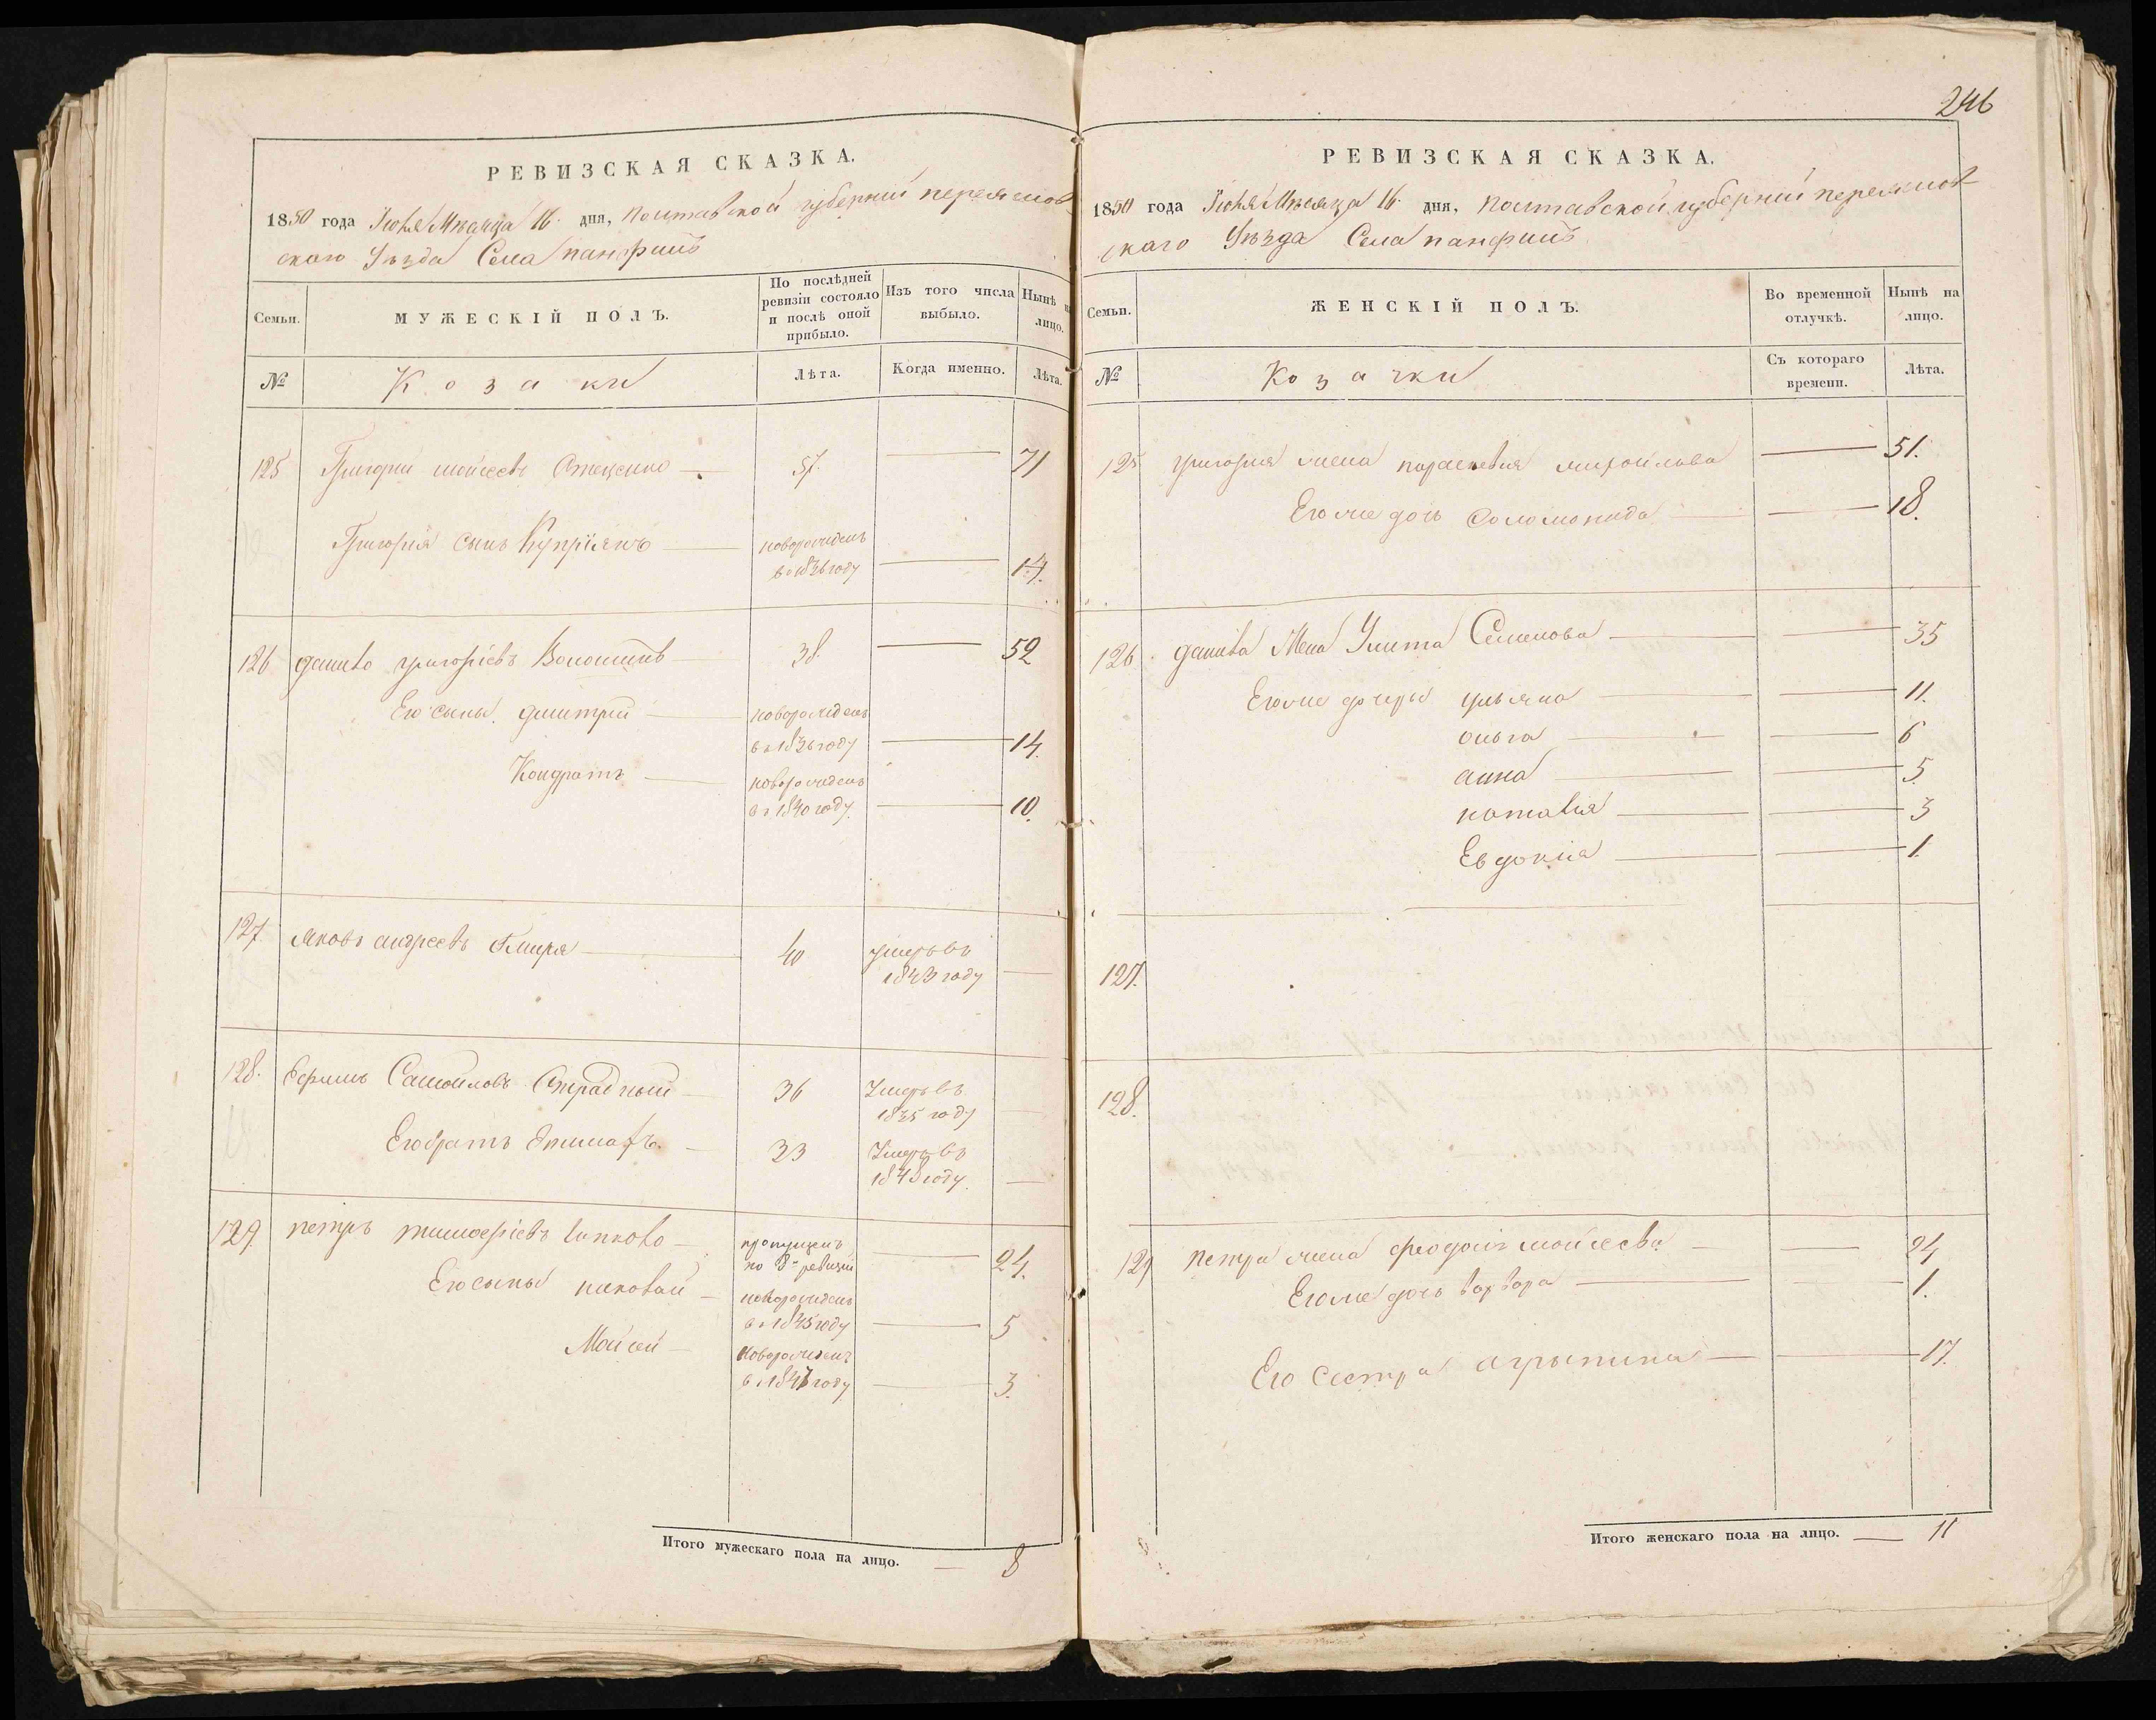 246
РЕВИЗСКАЯ СКАЗКА.
1850 года Июня Мѣсяца 16 дня, полтавской губернии переяслов
скаго Уѣзда Села панфилъ
Семьи.
МУЖЕСКІЙ ПОЛЪ.
По послѣдней ревизіи состояло и послѣ оной прибыло.
Изъ того числа выбыло.
Нынѣ на лицо.
№
Козаки
Лѣта.
Когда именно.
Лѣта.
125 Григорий мойсеевъ 57. 71
Григорія сынъ Купріянъ новорожденъ
въ 1836 году 14.
126 данило григоріевъ Волошинъ 38. 52
Его сыны дмитрий новорожденъ
въ 1836 году 14.
Кондратъ новорожденъ
въ 1840 году. 10.
127. яковъ андреевъ 40 умеръ въ
1843 году
128. Ефимъ Самойловъ Отрадный 36 Умеръ въ
1835 году
Его братъ 23 Умеръ въ
1848 году.
129. петръ тимоѳеевъ пропущенъ
по 8й ревизии 24.
Его сыны новорожденъ
въ 1845 году 5
Мойсей новорожденъ
въ 1847 году 3.
Итого мужескаго пола на лицо. 8
РЕВИЗСКАЯ СКАЗКА.
1850 года Июня Мѣсяца 16 дня, полтавской губернии переяслов
скаго Уѣзда Села панфилъ
Семьи.
ЖЕНСКІЙ ПОЛЪ.
Во временной отлучкѣ.
Нынѣ на лицо.
№
Козачки
Съ котораго времени.
Лѣта.
125 григория жена параскевия михайлова 51.
Его же дочь Соломонида 18.
126. данила Жена Улита Семенова 35
Его же дочери ульяна 11.
ольга 6
анна 5
наталия 3
Евдокиа 1.
127.
128.
129 петра жена феодосия мойсеева 24
Его же дочь варвара 1.
Его Сестра агрыпина 17.
Итого женскаго пола на лицо. 11